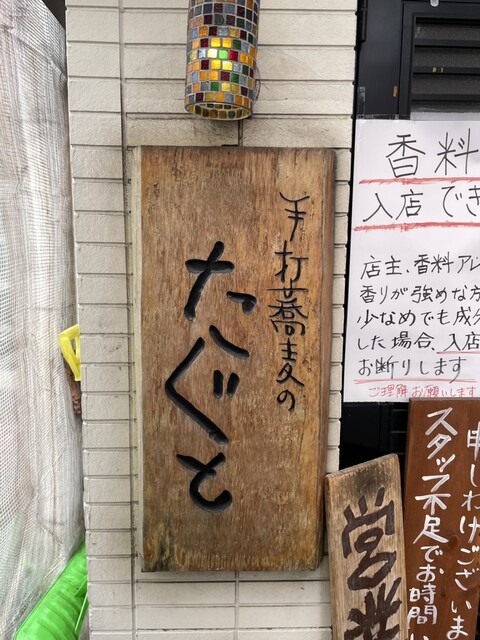 手打蕎麦の
たぐと
香料
入店でき
店主、香料アレ
香りが強めな方
少なめでも成分
した場合、入店
お断りします
ご理解お願いします
営業
申しわけございま
スタッフ不足でお時間